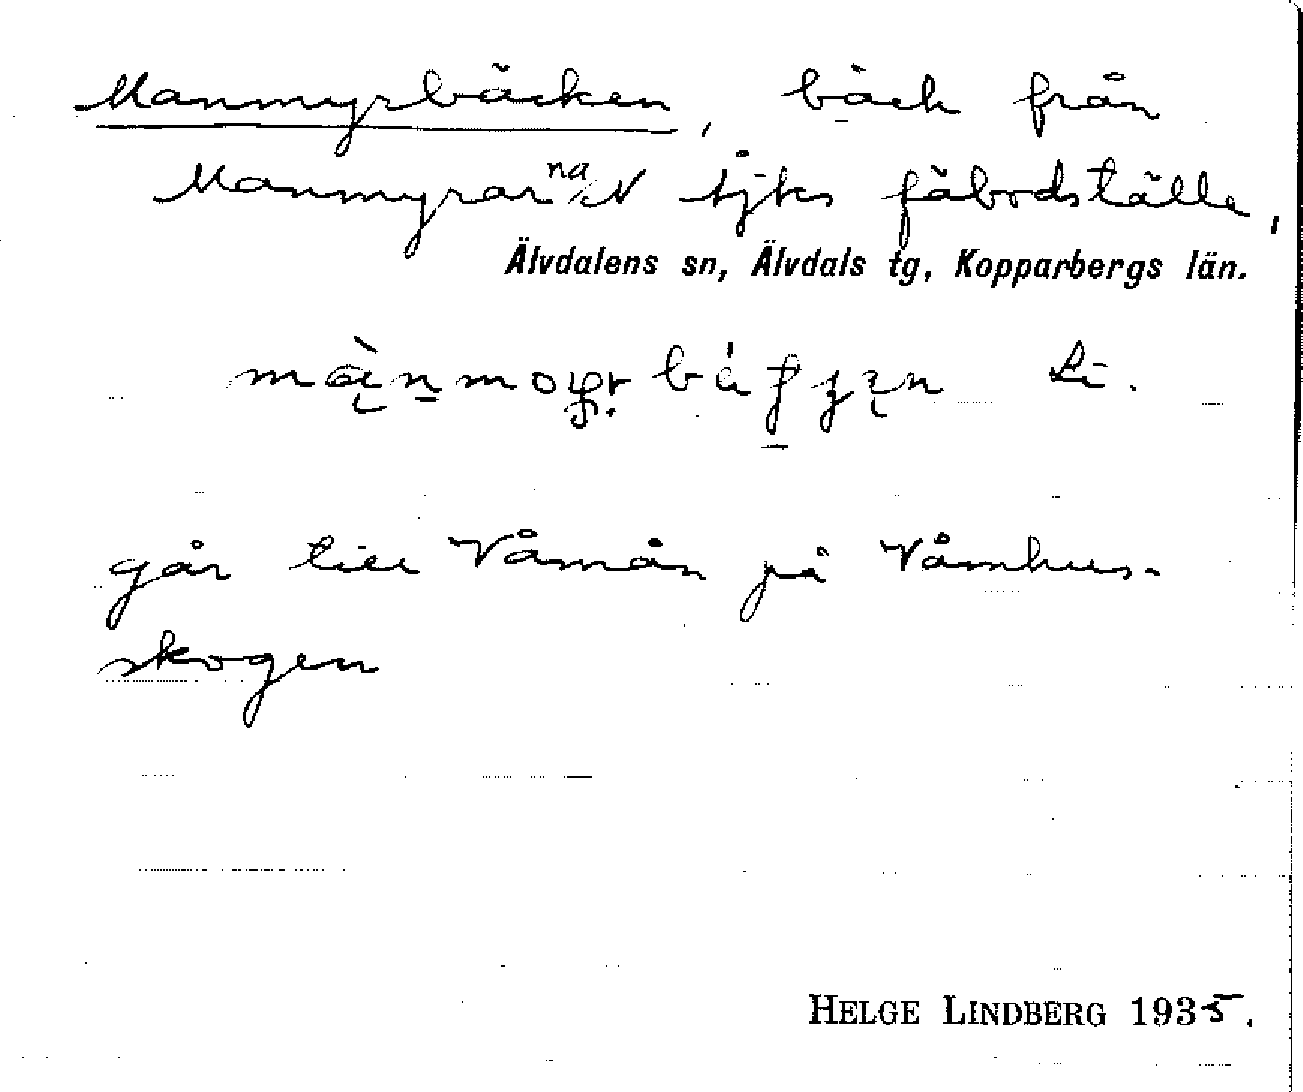 Manmyrbäcken, bäck från
Manmyrarna N fäbodställe,
Älvdalens sn, Älvdals tg, Kopparbergs län.
Li.
går till Våmån på Våmhus-
skogen
HELGE LINDBERG 1935.